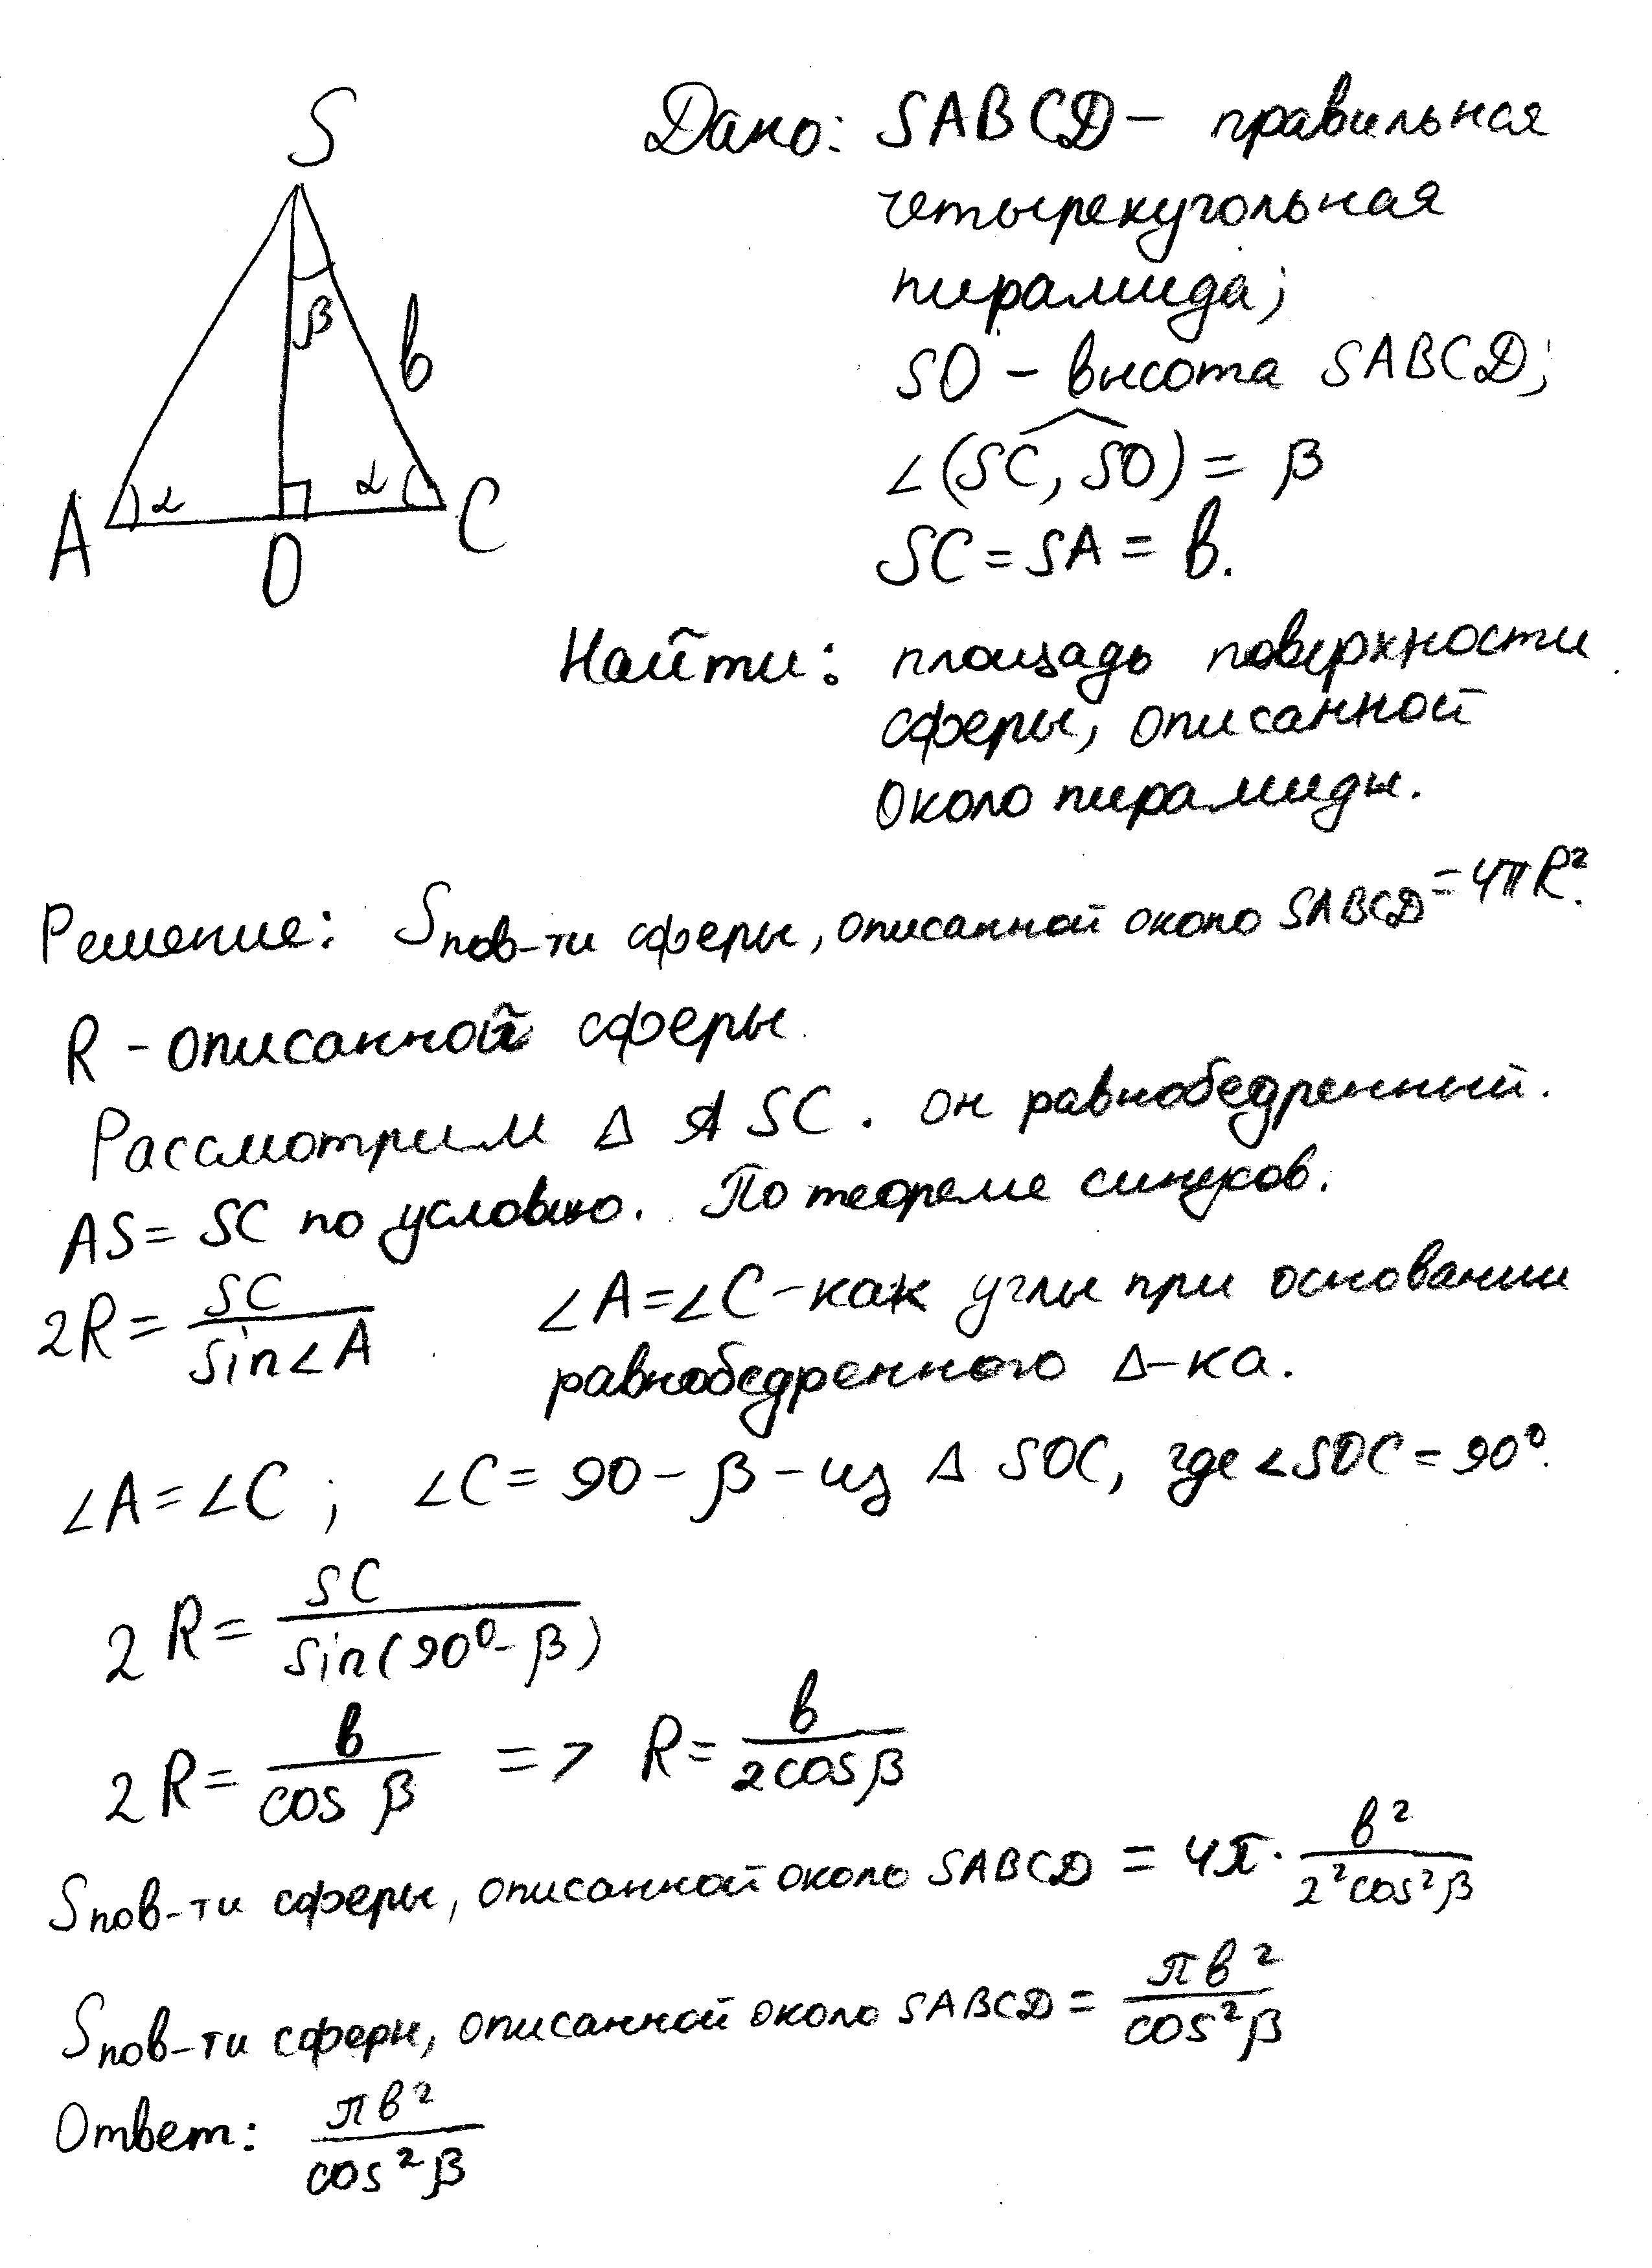 S
β
в
A
α
α
C
O
Дано: SABCD – правильная
четырехугольная
пирамида;
SO – высота SABCD;
∠(SC, SO) = β
SC = SA = в.
Найти: площадь поверхности
сферы, описанной
около пирамиды.
Решение: Sпов-ти сферы, описанной около SABCD = 4πR².
R – описанной сферы.
Рассмотрим Δ ASC. он равнобедренный.
AS = SC по условию. По теореме синусов.
2R = SC / sin∠A
∠A = ∠C – как углы при основании
равнобедренного Δ-ка.
∠A = ∠C ; ∠C = 90 – β – из Δ SOC, где ∠SOC = 90°.
2R = SC / sin(90° - β)
2R = в / cos β => R = в / 2cosβ
Sпов-ти сферы, описанной около SABCD = 4π · в² / 2²cos²β
Sпов-ти сферы, описанной около SABCD = πв² / cos²β
Ответ: πв² / cos²β